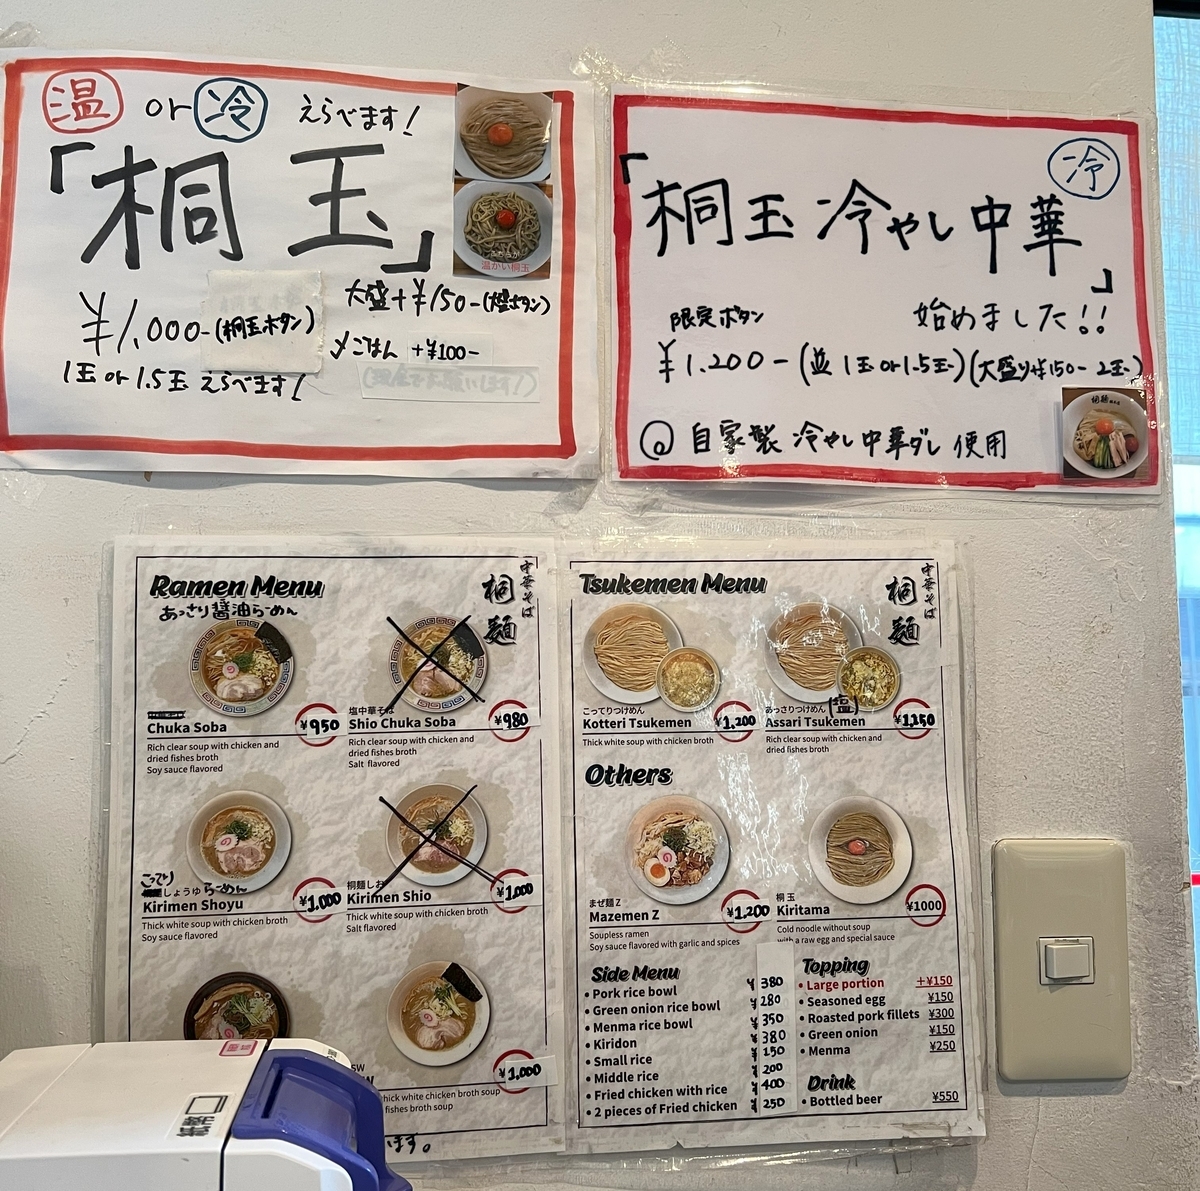 温 or 冷 えらべます!
「桐玉」
温かい桐玉
¥1,000-(桐玉ボタン)
大盛+¥150-(大盛ボタン)
〆ごはん +¥100-
1玉 or 1.5玉 えらべます!
冷
「桐玉 冷やし中華」
限定ボタン
始めました!!
¥1.200-(並 1玉 or 1.5玉)(大盛り+¥150- 2玉)
◎ 自家製 冷やし中華ダレ 使用
Ramen Menu
中華そば
桐麺
あっさり醤油らーめん
Chuka Soba
¥950
Rich clear soup with chicken and
dried fishes broth
Soy sauce flavored
塩中華そば
Shio Chuka Soba
¥980
Rich clear soup with chicken and
dried fishes broth
Salt flavored
こってり
しょうゆ らーめん
Kirimen Shoyu
¥1,000
Thick white soup with chicken broth
Soy sauce flavored
桐麺しお
Kirimen Shio
¥1,000
Thick white soup with chicken broth
Salt flavored
SW
W
¥1,000
thick white soup with chicken broth soup
fishes broth soup
ます。
Tsukemen Menu
中華そば
桐麺
こってりつけめん
Kotteri Tsukemen
¥1,200
Thick white soup with chicken broth
あっさりつけめん (塩)
Assari Tsukemen
¥1,150
Rich clear soup with chicken and
dried fishes broth
Others
まぜ麺Z
Mazemen Z
¥1,200
Soupless ramen
Soy sauce flavored with garlic and spices
桐玉
Kiritama
¥1000
Cold noodle without soup
with a raw egg and special sauce
Side Menu
• Pork rice bowl ¥380
• Green onion rice bowl ¥280
• Menma rice bowl ¥350
• Kiridon ¥380
• Small rice ¥150
• Middle rice ¥200
• Fried chicken with rice ¥400
• 2 pieces of Fried chicken ¥250
Topping
• Large portion +¥150
• Seasoned egg ¥150
• Roasted pork fillets ¥300
• Green onion ¥150
• Menma ¥250
Drink
• Bottled beer ¥550